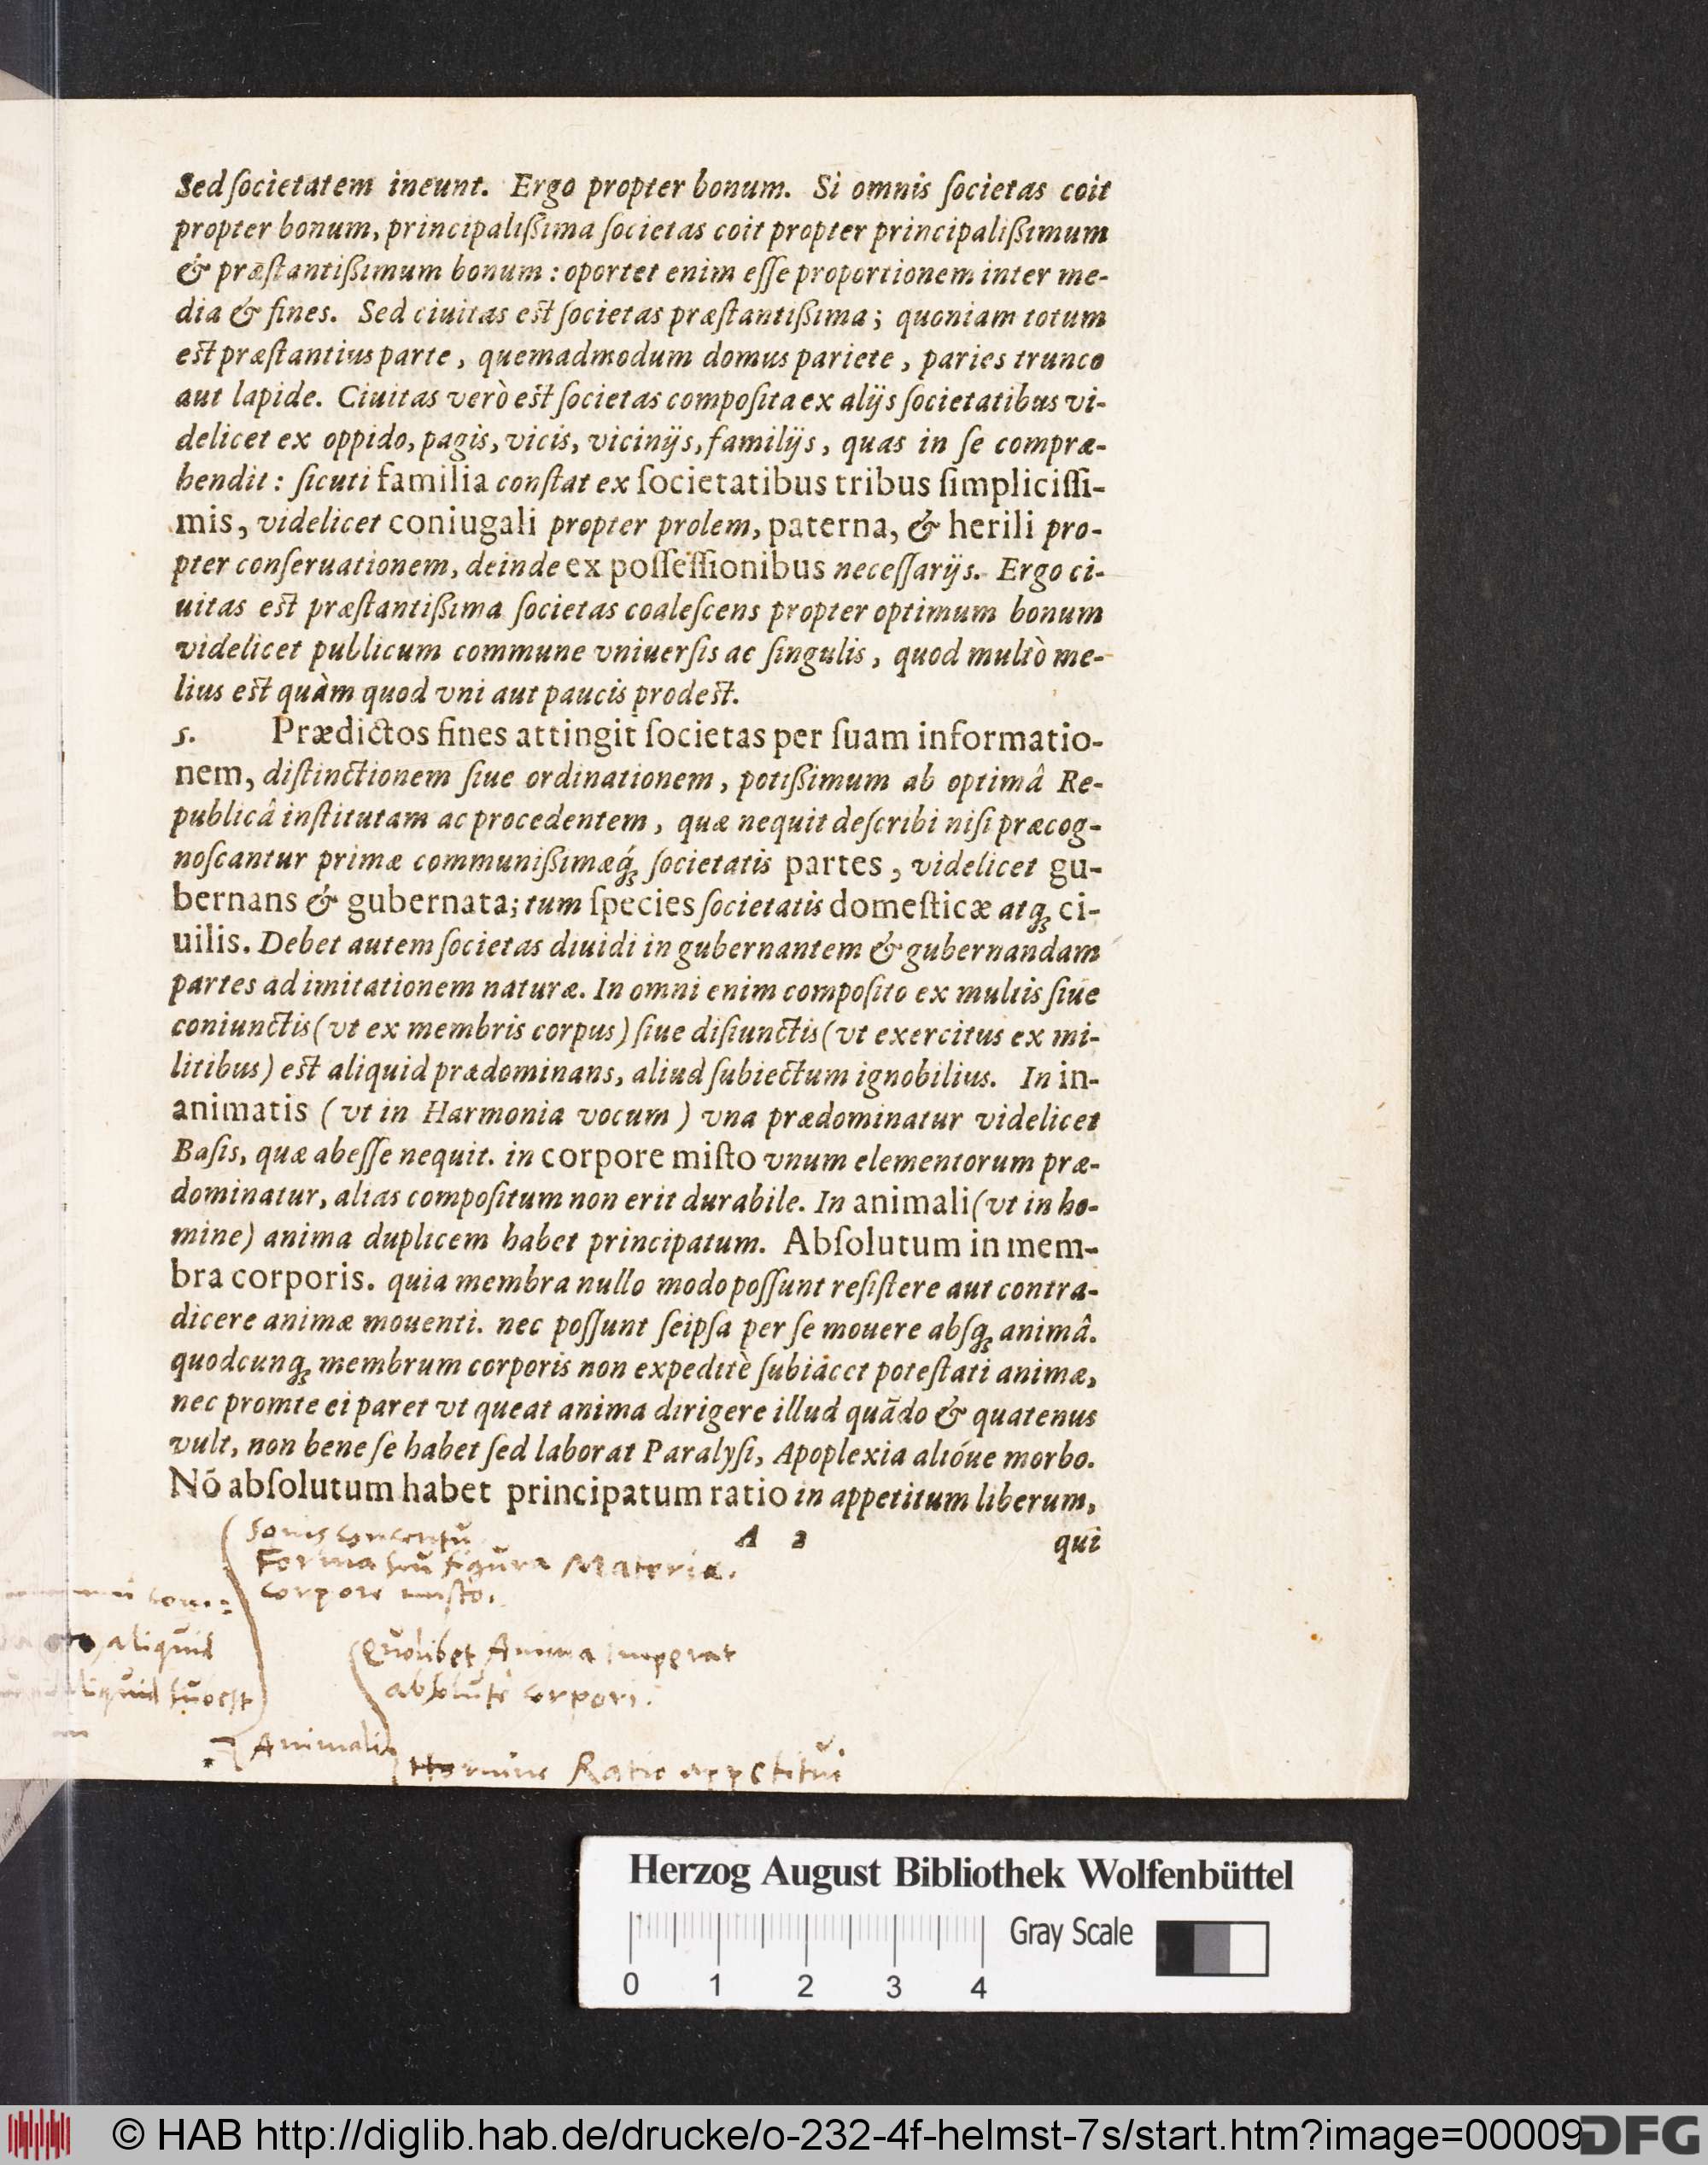 Sed ſocietatem ineunt. Ergo propter bonum. Si omnis ſocietas coit
propter bonum, principalißima ſocietas coit propter principalißimum
& præſtantißimum bonum : oportet enim eſſe proportionem inter me-
dia & fines. Sed ciuitas est ſocietas præſtantißima ; quoniam totum
est præſtantius parte , quemadmodum domus pariete , paries trunco
aut lapide. Ciuitas verò est ſocietas compoſita ex alijs ſocietatibus vi-
delicet ex oppido, pagis, vicis, vicinijs, familijs , quas in ſe compræ-
hendit : ſicuti familia conſtat ex ſocietatibus tribus ſimpliciſſi-
mis, videlicet coniugali propter prolem, paterna, & herili pro-
pter conſeruationem, deinde ex poſſeſſionibus neceſſarijs. Ergo ci-
uitas est præſtantißima ſocietas coaleſcens propter optimum bonum
videlicet publicum commune vniuerſis ac ſingulis , quod multò me-
lius est quàm quod vni aut paucis prodest.
5. Prædictos fines attingit ſocietas per ſuam informatio-
nem, diſtinctionem ſiue ordinationem , potißimum ab optimâ Re-
publicâ inſtitutam ac procedentem , quæ nequit deſcribi niſi præcog-
noſcantur primæ communißimæq́; ſocietatis partes , videlicet gu-
bernans & gubernata; tum ſpecies ſocietatis domeſticæ atq; ci-
uilis. Debet autem ſocietas diuidi in gubernantem & gubernandam
partes ad imitationem naturæ. In omni enim compoſito ex multis ſiue
coniunctis (vt ex membris corpus) ſiue diſiunctis (vt exercitus ex mi-
litibus) est aliquid prædominans, aliud ſubiectum ignobilius. In in-
animatis ( vt in Harmonia vocum ) vna prædominatur videlicet
Baſis, quæ abeſſe nequit. in corpore miſto vnum elementorum præ-
dominatur, alias compoſitum non erit durabile. In animali (vt in ho-
mine) anima duplicem habet principatum. Abſolutum in mem-
bra corporis. quia membra nullo modo poſſunt reſiſtere aut contra-
dicere animæ mouenti. nec poſſunt ſeipſa per ſe mouere abſq; animâ.
quodcunq; membrum corporis non expeditè ſubiacet poteſtati animæ,
nec promte ei paret vt queat anima dirigere illud quãdo & quatenus
vult, non bene ſe habet ſed laborat Paralyſi, Apoplexia alióue morbo.
Nõ abſolutum habet principatum ratio in appetitum liberum,
A 2 qui
Forma seu figura Materiæ.
corpore misto.
aliquid
Quolibet Anima imperat
absolute corpori.
Animali
Homine Ratio appetitui
Herzog August Bibliothek Wolfenbüttel
Gray Scale
0 1 2 3 4
© HAB http://diglib.hab.de/drucke/o-232-4f-helmst-7s/start.htm?image=00009
DFG